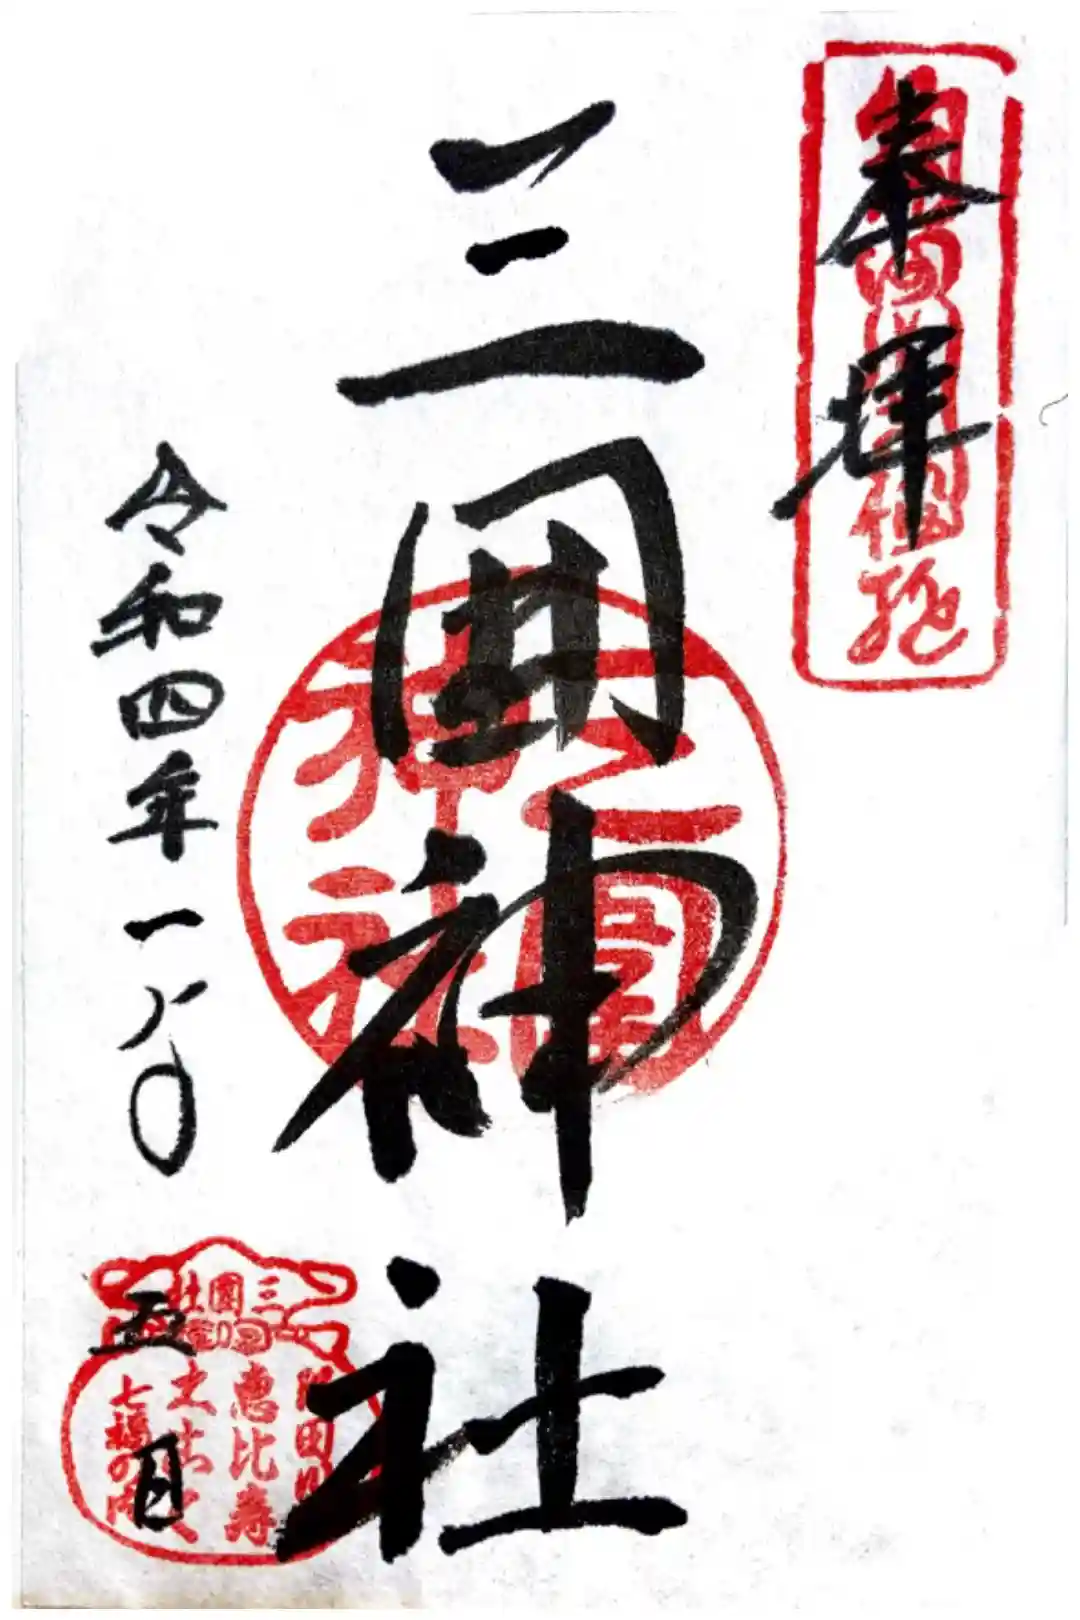 奉拝
三囲神社
三囲神社
令和四年一月
五日
三圍社
恵比寿
大黒天
七福の内